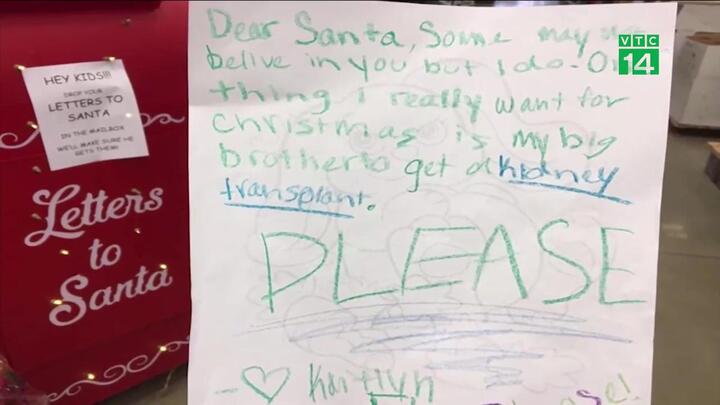 Dear Santa, Some may
belive in you but I do. On
thing I really want for
christmas is my big
brother to get a kidney
transplant.
PLEASE
- ♡ Kaitlyn
VTC
14
HEY KIDS!!!
DROP YOUR
LETTERS TO
SANTA
IN THE MAILBOX
WE'LL MAKE SURE HE
GETS THEM!
Letters
to
Santa